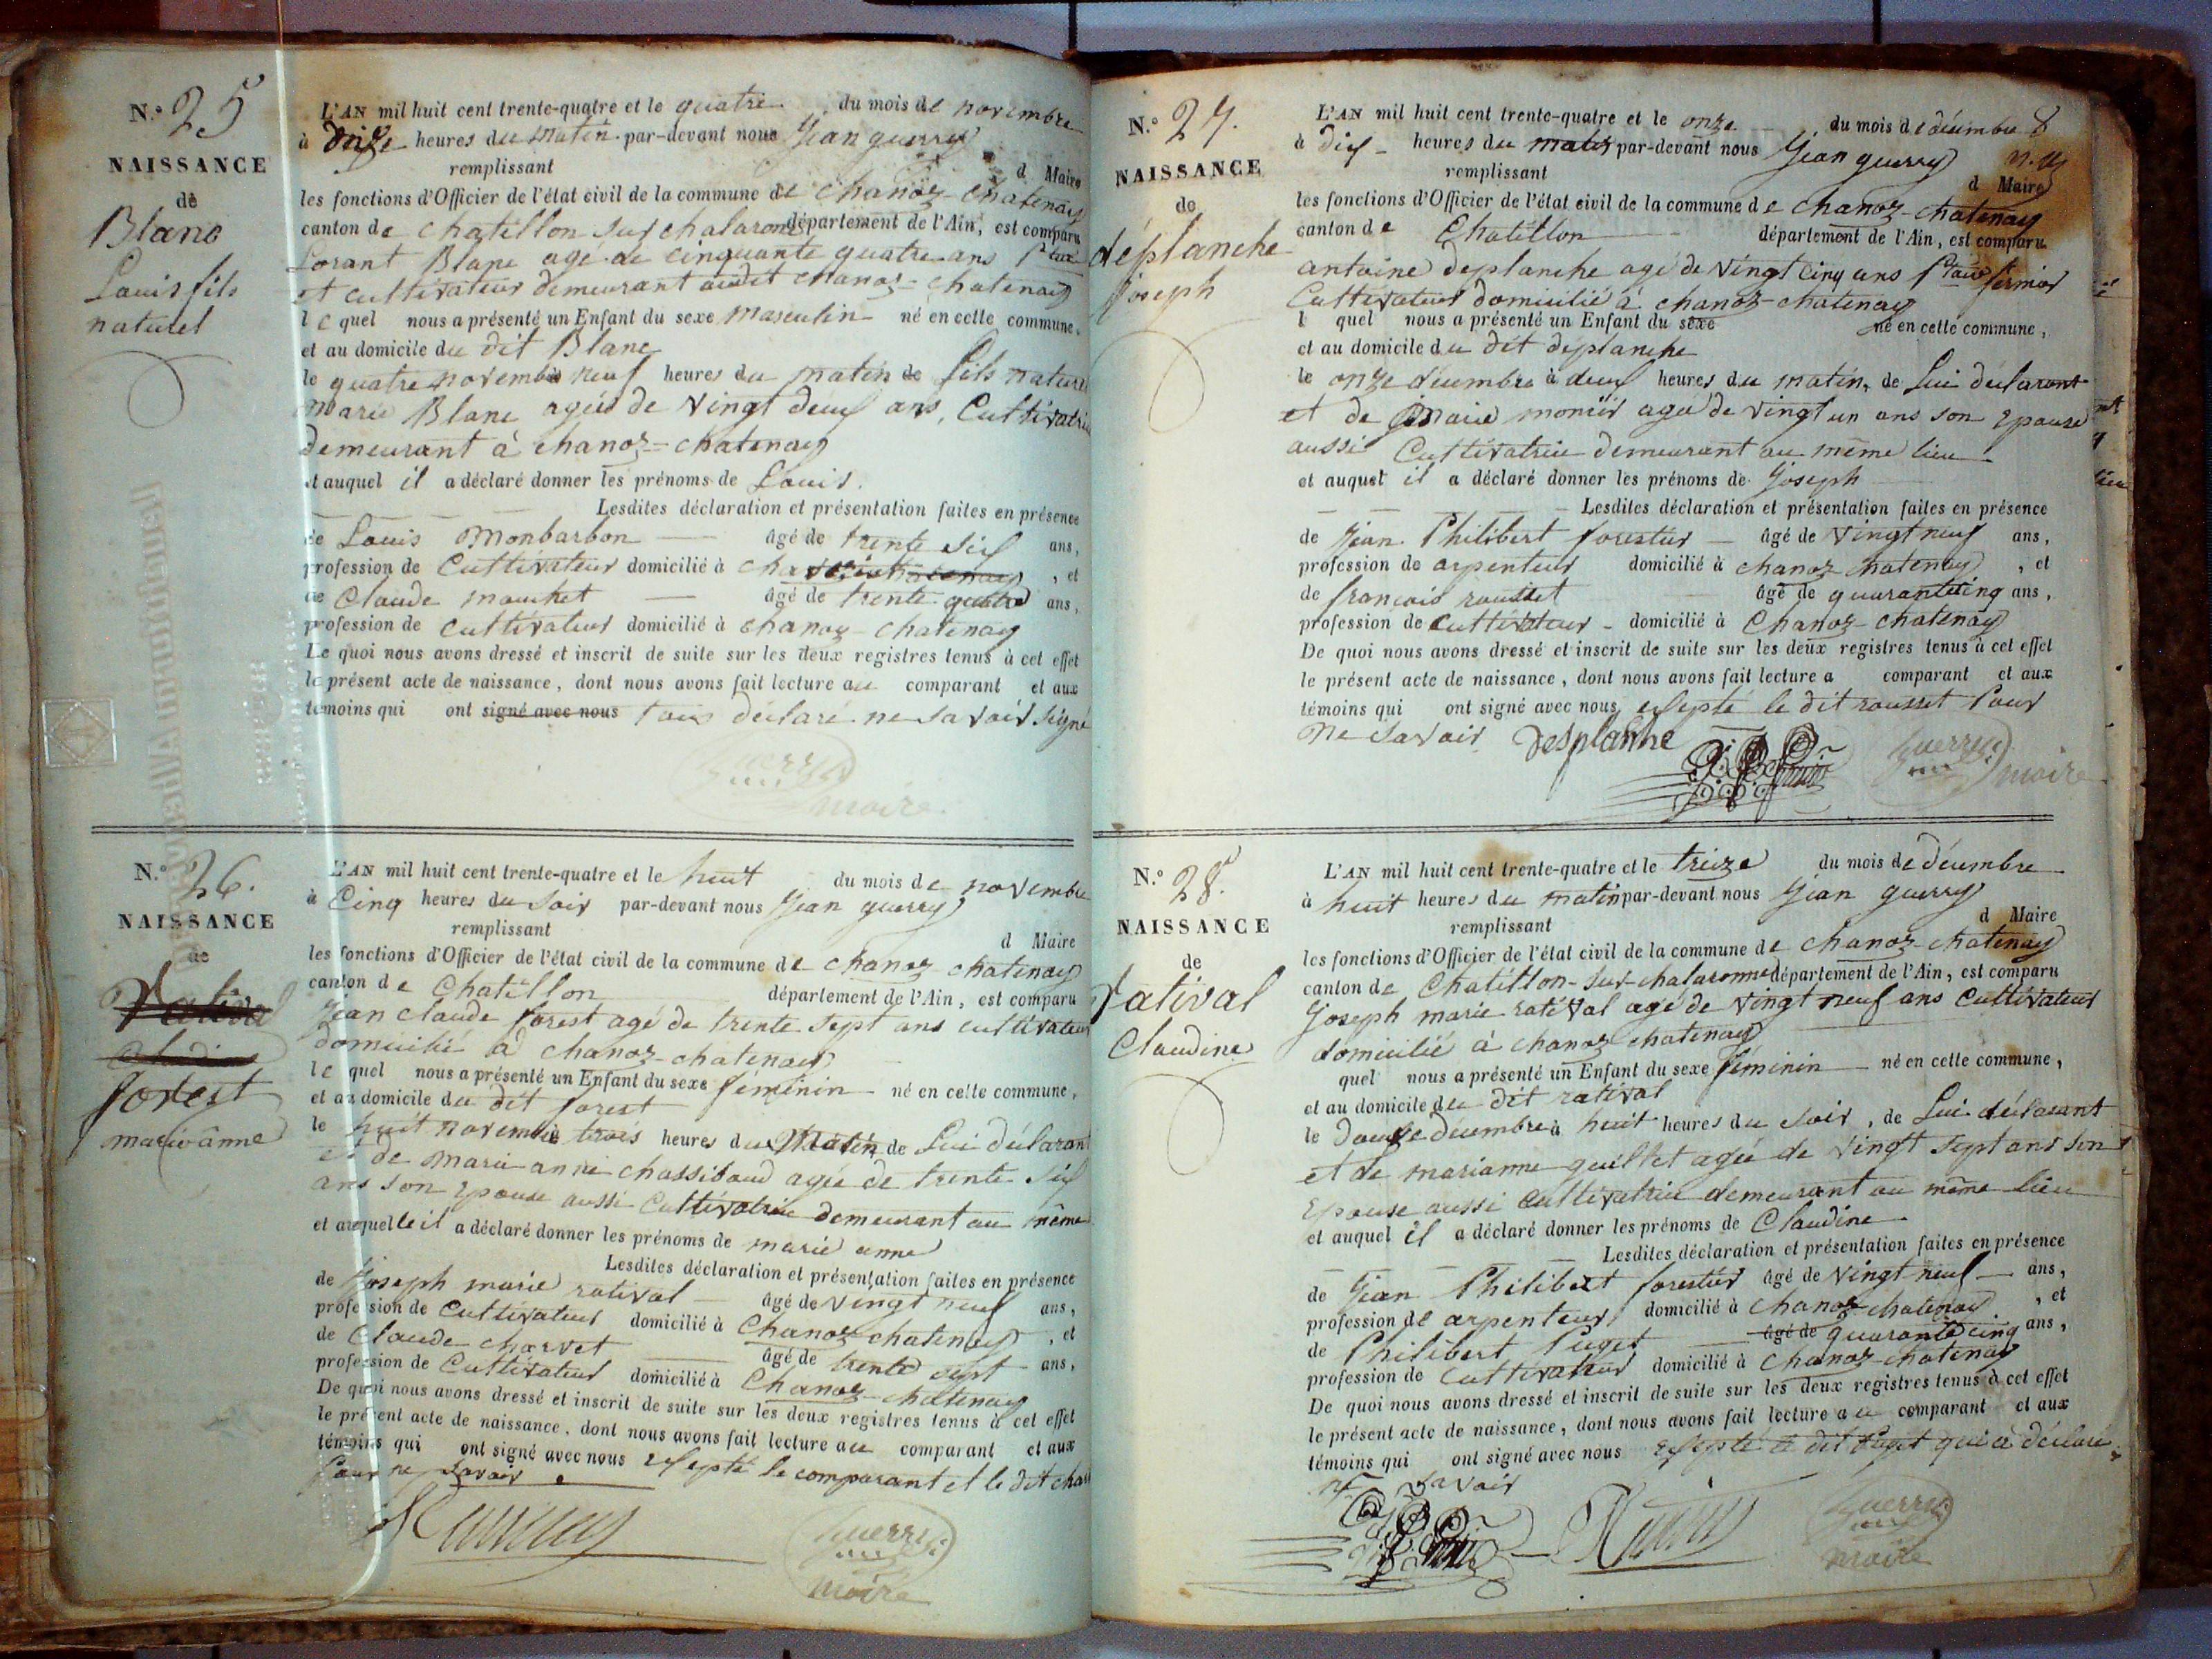 N.o 25
NAISSANCE
de
Blanc
Louis fils
naturel
L'AN mil huit cent trente-quatre et le quatre du mois de novembre
à heures du matin par-devant nous Jean guerry
remplissant d Maire
les fonctions d'Officier de l'état civil de la commune de chanoz-chatenay
canton de chatillon sur chalaronne département de l'Ain, est comparu
Lorant Blanc agé de cinquante quatre ans
et cultivateur demeurant audit chanoz-chatenay
le quel nous a présenté un Enfant du sexe masculin né en cette commune,
et au domicile du dit Blanc
le quatre novembre neuf heures du matin de fils naturel
marie Blanc agée de vingt deux ans, Cultivatrice
demeurant à chanoz-chatenay
et auquel il a déclaré donner les prénoms de Louis.
Lesdites déclaration et présentation faites en présence
de Louis Monbarbon âgé de trente six ans,
profession de Cultivateur domicilié à , et
de Claude mouchet âgé de trente quatre ans,
profession de cultivateur domicilié à chanoz-chatenay
De quoi nous avons dressé et inscrit de suite sur les deux registres tenus à cet effet
le présent acte de naissance, dont nous avons fait lecture au comparant et aux
témoins qui ont signé avec nous tous déclaré ne savoir signé
guerry
maire
N.o 26.
NAISSANCE
de
Ratival
forest
marie anne
L'AN mil huit cent trente-quatre et le huit du mois de novembre
à Cinq heures du soir par-devant nous Jean guerry
remplissant d Maire
les fonctions d'Officier de l'état civil de la commune de chanoz chatenay
canton de Chatillon département de l'Ain, est comparu
Jean claude forest agé de trente sept ans cultivateur
domicilié à chanoz-chatenay
le quel nous a présenté un Enfant du sexe féminin né en cette commune,
et au domicile du dit forest
le huit novembre trois heures du Matin de Lui déclarant
et de marie anne chassiboud agée de trente six
ans son Epouse aussi Cultivatrice demeurant au même
et auquelle il a déclaré donner les prénoms de marie anne
Lesdites déclaration et présentation faites en présence
de Joseph marie ratival âgé de vingt neuf ans,
profession de cultivateur domicilié à Chanoz chatenay , et
de Claude charvet âgé de trente sept ans,
profession de Cultivateur domicilié à Chanoz-chatenay
De quoi nous avons dressé et inscrit de suite sur les deux registres tenus à cet effet
le présent acte de naissance, dont nous avons fait lecture au comparant et aux
témoins qui ont signé avec nous exsepté le comparant et le dit
pour ne savoir
guerry
maire
N.o 27.
NAISSANCE
de
déplanche
joseph
L'AN mil huit cent trente-quatre et le onze du mois de décembre
à dix heures du matin par-devant nous Jean guerry
remplissant d Maire
les fonctions d'Officier de l'état civil de la commune de chanoz-chatenay
canton de Chatillon département de l'Ain, est comparu
antoine deplanche agé de vingt cinq ans fermier
Cultivateur domicilié à chanoz-chatenay
l quel nous a présenté un Enfant du sexe né en cette commune,
et au domicile du dit deplanche
le onze décembre à deux heures du matin, de Lui déclarant
et de Marie monier agée de vingt un ans son Epouse
aussi Cultivatrice demeurant au même lieu
et auquel il a déclaré donner les prénoms de Joseph
Lesdites déclaration et présentation faites en présence
de Jean Philibert forestier âgé de vingt neuf ans,
profession de arpenteur domicilié à chanoz chatenay , et
de françois rousset âgé de quarante cinq ans,
profession de cultivateur domicilié à Chanoz-chatenay
De quoi nous avons dressé et inscrit de suite sur les deux registres tenus à cet effet
le présent acte de naissance, dont nous avons fait lecture a comparant et aux
témoins qui ont signé avec nous exsepté le dit rousset pour
ne savoir Desplanche
guerry
maire
N.o 28.
NAISSANCE
de
ratival
Claudine
L'AN mil huit cent trente-quatre et le treize du mois de décembre
à huit heures du matin par-devant nous Jean guerry
remplissant d Maire
les fonctions d'Officier de l'état civil de la commune de chanoz-chatenay
canton de Chatillon-sur-chalaronne département de l'Ain, est comparu
Joseph marie ratival agé de vingt neuf ans Cultivateur
domicilié à chanoz chatenay
quel nous a présenté un Enfant du sexe féminin né en cette commune,
et au domicile du dit ratival
le douze décembre à huit heures du soir, de Lui déclarant
et de marianne guillet agée de vingt sept ans son
Epouse aussi Cultivatrice demeurant au même lieu
et auquel il a déclaré donner les prénoms de Claudine
Lesdites déclaration et présentation faites en présence
de Jean Philibert forestier âgé de vingt neuf ans,
profession de arpenteur domicilié à chanoz-chatenay , et
de Philibert Puget âgé de quarante cinq ans,
profession de Cultivateur domicilié à chanoz-chatenay
De quoi nous avons dressé et inscrit de suite sur les deux registres tenus à cet effet
le présent acte de naissance, dont nous avons fait lecture au comparant et aux
témoins qui ont signé avec nous exsepté le dit Puget qui a déclaré
ne savoir
guerry
maire